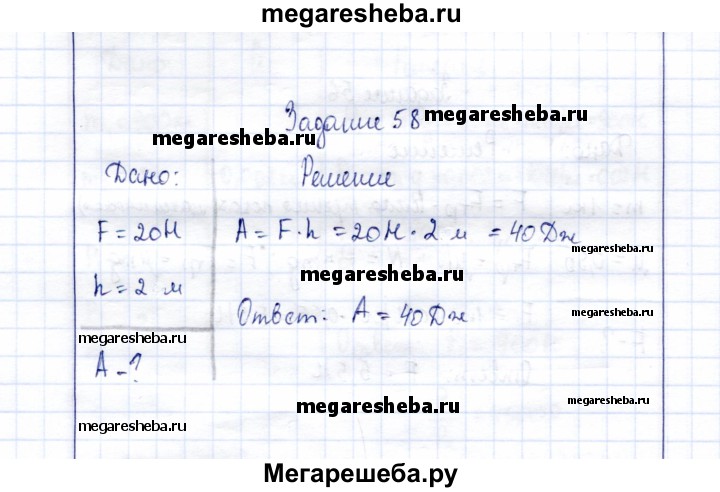 megaresheba.ru
Задание 58 megaresheba.ru
megaresheba.ru
Дано: Решение
F = 20Н A = F · h = 20Н · 2 м = 40 Дж
megaresheba.ru
megaresheba.ru
h = 2 м
Ответ: A = 40 Дж
megaresheba.ru
megaresheba.ru
A - ?
megaresheba.ru
megaresheba.ru
megaresheba.ru
Мегарешеба.ру